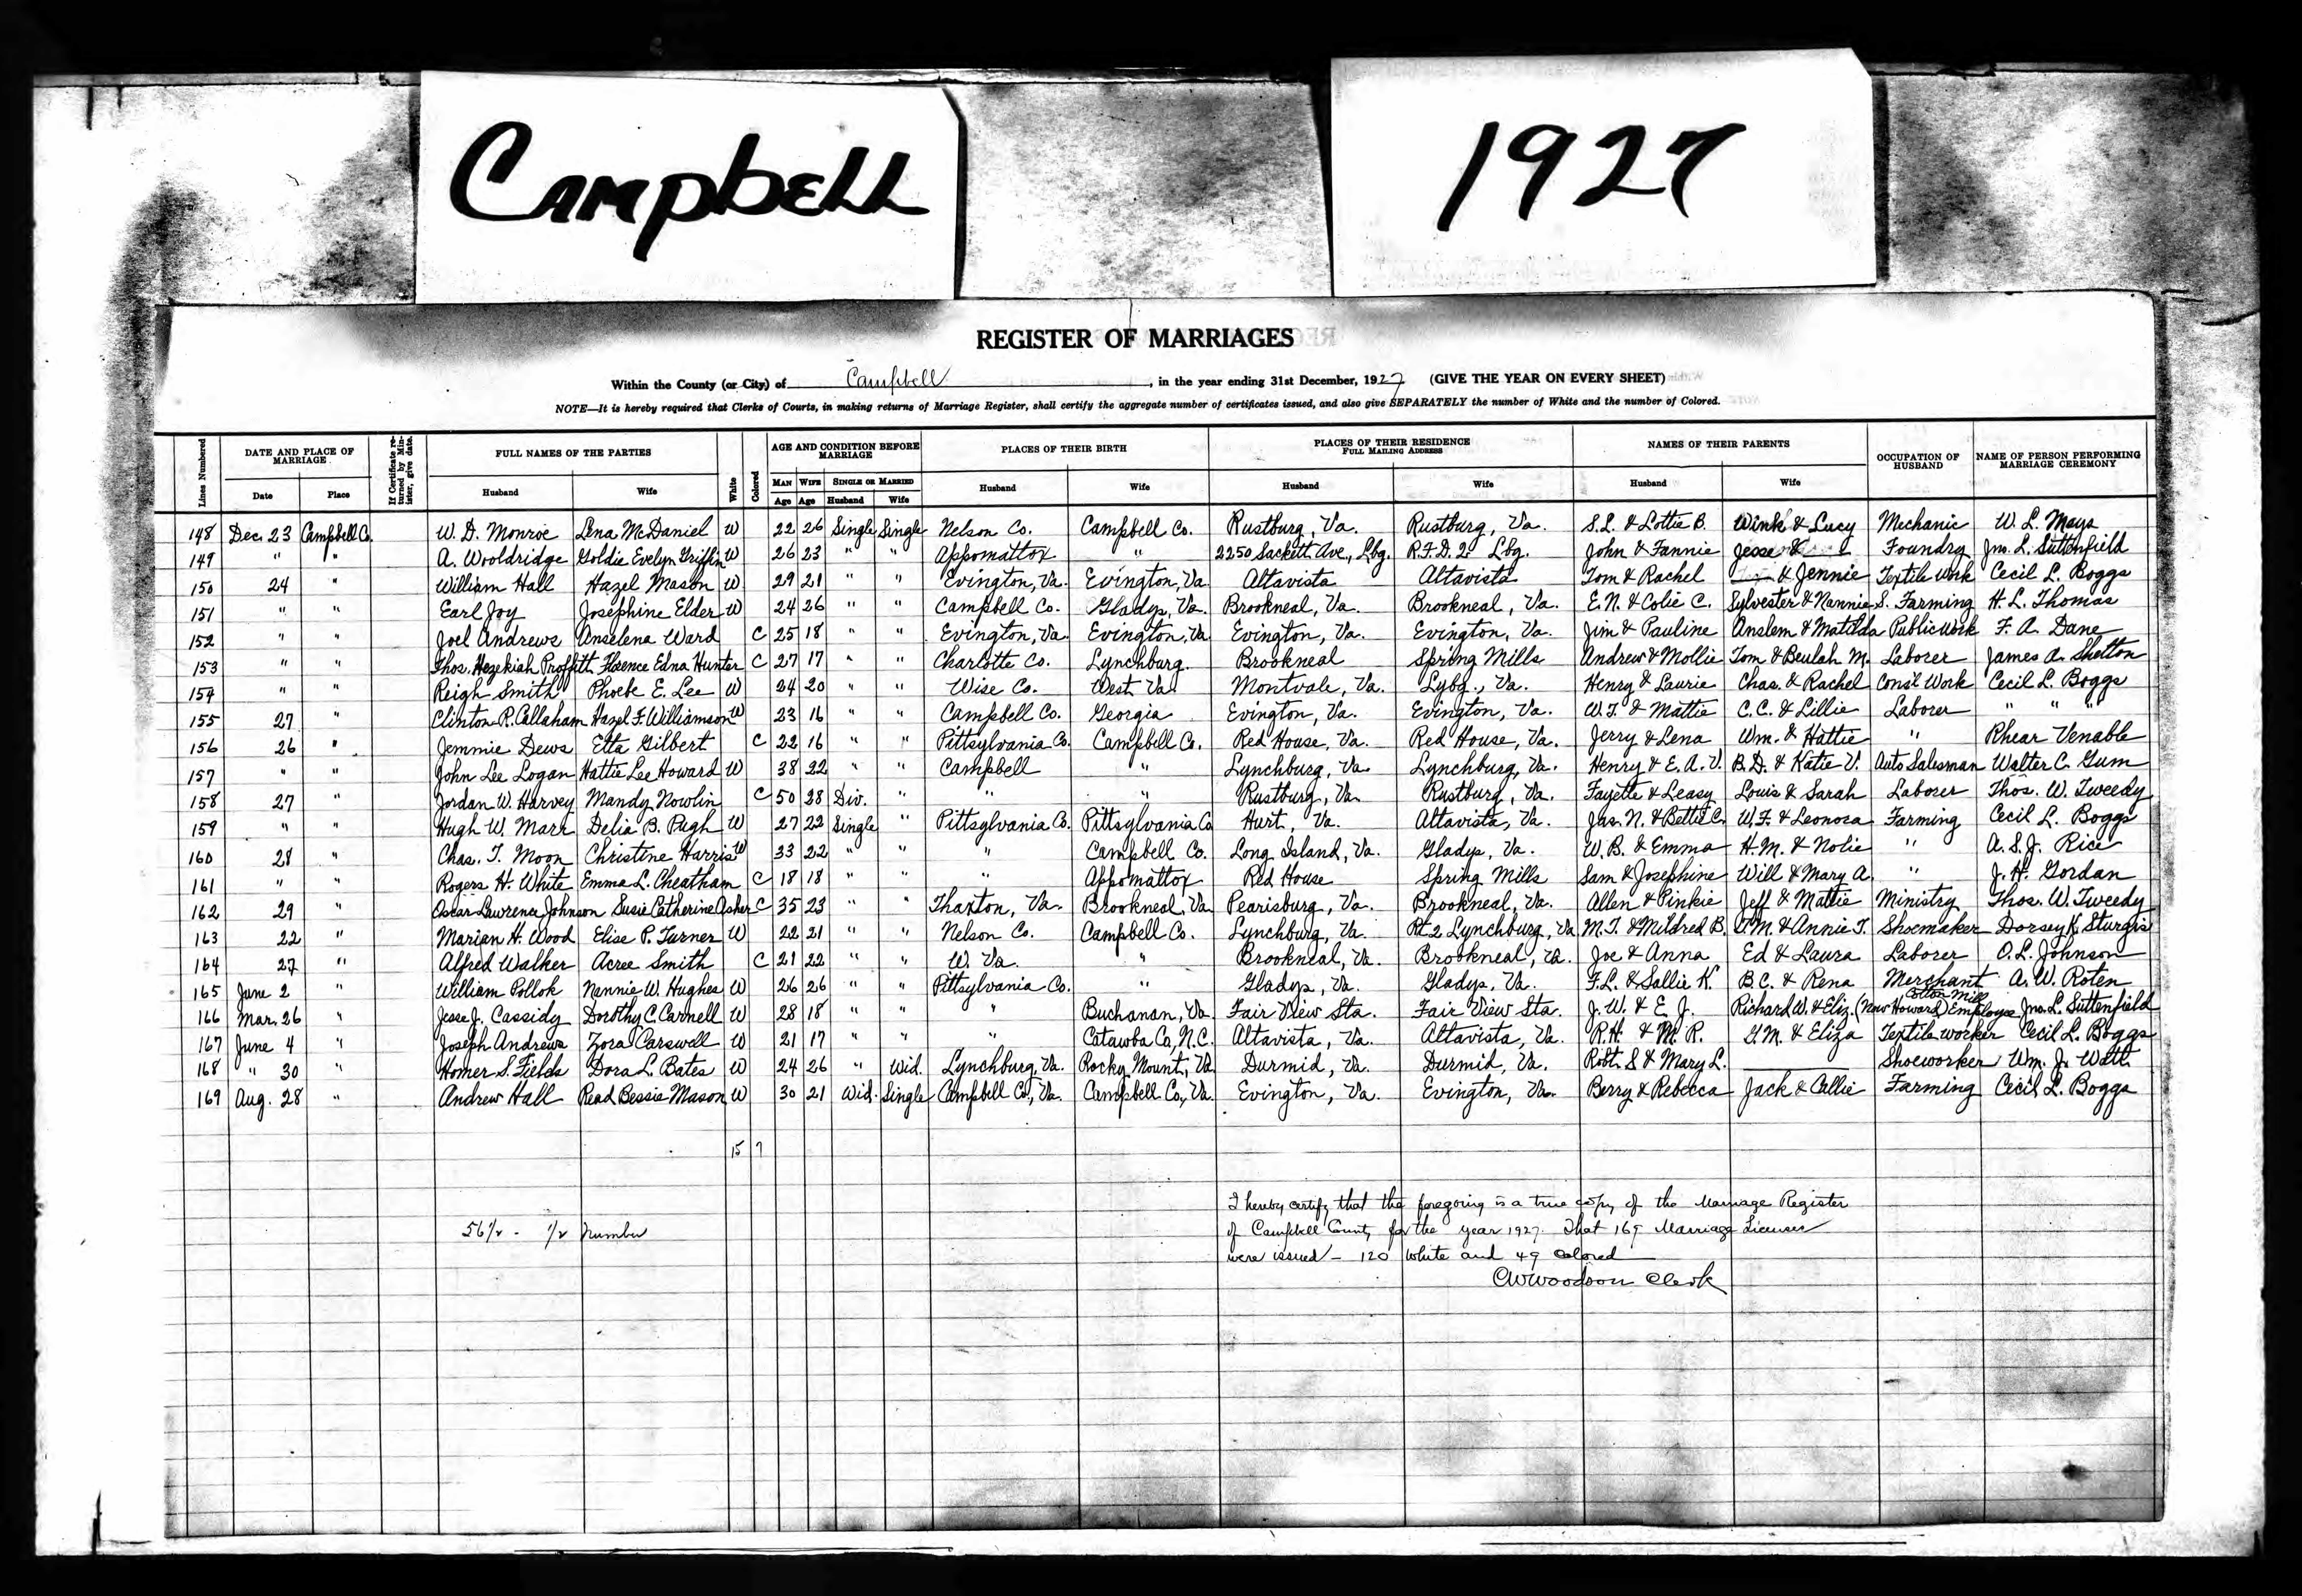 Campbell
1927
REGISTER OF MARRIAGES
Within the County (or City) of Campbell, in the year ending 31st December, 1927 (GIVE THE YEAR ON EVERY SHEET)
NOTE—It is hereby required that Clerks of Courts, in making returns of Marriage Register, shall certify the aggregate number of certificates issued, and also give SEPARATELY the number of White and the number of Colored.
Lines Numbered DATE AND PLACE OF MARRIAGE If Certificate returned by Minister, give date. FULL NAMES OF THE PARTIES White Colored AGE AND CONDITION BEFORE MARRIAGE PLACES OF THEIR BIRTH PLACES OF THEIR RESIDENCE FULL MAILING ADDRESS NAMES OF THEIR PARENTS OCCUPATION OF HUSBAND NAME OF PERSON PERFORMING MARRIAGE CEREMONY
Date Place Husband Wife MAN Age WIFE Age SINGLE OR MARRIED Husband Wife Husband Wife Husband Wife Husband Wife
148 Dec. 23 Campbell Co. W. D. Monroe Lena McDaniel W 22 26 Single Single Nelson Co. Campbell Co. Rustburg, Va. Rustburg, Va. S.L. & Lottie B. Wink & Lucy Mechanic W. L. Mays
149 " " A. Wooldridge Goldie Evelyn Griffin W 26 23 " " Appomattox " 2250 Sackett Ave., Lbg. R.F.D. 2 Lbg. John & Fannie Jesse & Foundry Jno. L. Suttenfield
150 24 " William Hall Hazel Mason W 29 21 " " Evington, Va. Evington, Va. Altavista Altavista Tom & Rachel & Jennie Textile Work Cecil L. Boggs
151 " " Earl Joy Josephine Elder W 24 26 " " Campbell Co. Gladys, Va. Brookneal, Va. Brookneal, Va. E.N. & Colie C. Sylvester & Nannie S. Farming H. L. Thomas
152 " " Joel Andrews Anselena Ward C 25 18 " " Evington, Va. Evington, Va. Evington, Va. Evington, Va. Jim & Pauline Anslem & Matilda Public Work F. A. Dane
153 " " Thos. Hezekiah Proffitt Florence Edna Hunter C 27 17 " " Charlotte Co. Lynchburg. Brookneal Spring Mills Andrew & Mollie Tom & Beulah M. Laborer James A. Shelton
154 " " Reigh Smith Phoebe E. Lee W 24 20 " " Wise Co. West Va Montvale, Va. Lybg., Va. Henry & Laurie Chas. & Rachel Cons'l Work Cecil L. Boggs
155 27 " Clinton R. Callaham Hazel F. Williamson W 23 16 " " Campbell Co. Georgia Evington, Va. Evington, Va. W.T. & Mattie C.C. & Lillie Laborer " " "
156 26 " Jemmie Dews Etta Gilbert C 22 16 " " Pittsylvania Co. Campbell Co. Red House, Va. Red House, Va. Jerry & Lena Wm. & Hattie " Rhear Venable
157 " " John Lee Logan Hattie Lee Howard W 38 22 " " Campbell " Lynchburg, Va. Lynchburg, Va. Henry & E. A. V. B. D. & Katie V. Auto Salesman Walter C. Gum
158 27 " Jordan W. Harvey Mandy Nowlin C 50 28 Div. " " " Rustburg, Va. Rustburg, Va. Fayette & Leasy Louis & Sarah Laborer Thos. W. Tweedy
159 " " Hugh W. Marr Delia B. Pugh W 27 22 Single " Pittsylvania Co. Pittsylvania Co Hurt, Va. Altavista, Va. Jas. N. & Bettie C. W.F. & Leonora Farming Cecil L. Boggs
160 28 " Chas. T. Moon Christine Harris W 33 22 " " " Campbell Co. Long Island, Va. Gladys, Va. W. B. & Emma H.M. & Nolie " A. S. J. Rice
161 " " Rogers H. White Emma L. Cheatham C 18 18 " " " Appomattox Red House Spring Mills Sam & Josephine Will & Mary A. " J. H. Gordan
162 29 " Oscar Lawrence Johnson Susie Catherine Asher C 35 23 " " Thaxton, Va. Brookneal, Va. Pearisburg, Va. Brookneal, Va. Allen & Pinkie Jeff & Mattie Ministry Thos. W. Tweedy
163 22 " Marian H. Wood Elise P. Turner W 22 21 " " Nelson Co. Campbell Co. Lynchburg, Va. Rt 2 Lynchburg, Va M.T. & Mildred B. A.M. & Annie T. Shoemaker Dorsey K. Sturgis
164 27 " Alfred Walker Acree Smith C 21 22 " " W. Va. " Brookneal, Va. Brookneal, Va. Joe & Anna Ed & Laura Laborer O. L. Johnson
165 June 2 " William Pollok Nannie W. Hughes W 26 26 " " Pittsylvania Co. " Gladys, Va. Gladys, Va. F.L. & Sallie K. B.C. & Rena Merchant A. W. Roten
166 Mar. 26 " Jesse J. Cassidy Dorothy C. Carnell W 28 18 " " " Buchanan, Va Fair View Sta. Fair View Sta. J. W. & E. J. Richard W. & Eliz. (Now Howard) Cotton Mill Employee Jno. L. Suttenfield
167 June 4 " Joseph Andrews Zora Carswell W 21 17 " " " Catawba Co, N.C. Altavista, Va. Altavista, Va. R.H. & M. R. G.M. & Eliza Textile worker Cecil L. Boggs
168 " 30 " Homer S. Fields Dora L. Bates W 24 26 " Wid. Lynchburg, Va. Rocky Mount, Va Durmid, Va. Durmid, Va. Robt. S & Mary L. Shoeworker Wm. J. Watt
169 Aug. 28 " Andrew Hall Read Bessie Mason W 30 21 Wid. Single Campbell Co., Va. Campbell Co., Va. Evington, Va. Evington, Va. Berry & Rebecca Jack & Callie Farming Cecil L. Boggs
15 7
I hereby certify that the foregoing is a true copy of the Marriage Register
56 1/2 - 1/2 Number of Campbell County for the year 1927. That 169 Marriage Licenses
were issued - 120 white and 49 colored
CWWoodson Clerk